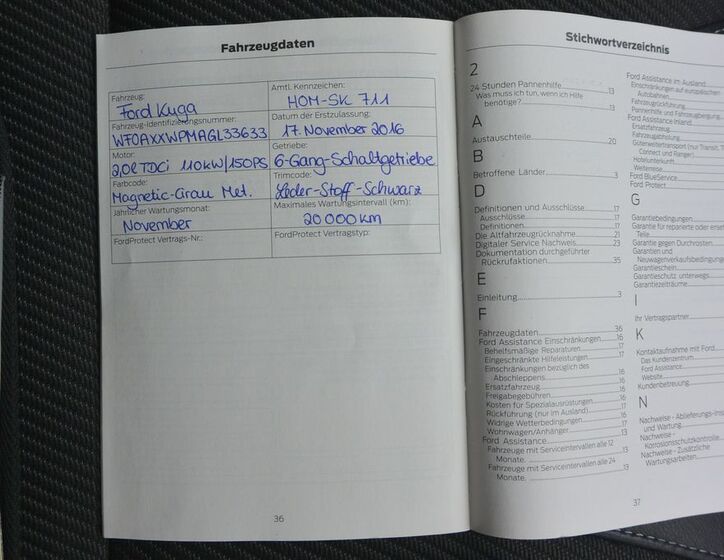 Fahrzeugdaten
Fahrzeug:
Ford Kuga
Amtl. Kennzeichen:
HOM-SK 711
Fahrzeug-Identifizierungsnummer:
WF0AXXWPMAGL33633
Datum der Erstzulassung:
17. November 2016
Motor:
2,0l TDCi 110kW/150PS
Getriebe:
6-Gang-Schaltgetriebe
Farbcode:
Magnetic-Grau Met.
Trimcode:
Leder-Stoff-Schwarz
Jährlicher Wartungsmonat:
November
Maximales Wartungsintervall (km):
20 000 km
FordProtect Vertrags-Nr.:
FordProtect Vertragstyp:
36
Stichwortverzeichnis
2
24 Stunden Pannenhilfe 13
Was muss ich tun, wenn ich Hilfe
benötige? 13
A
Austauschteile 20
B
Betroffene Länder 3
D
Definitionen und Ausschlüsse 17
Ausschlüsse 17
Definitionen 17
Die Altfahrzeugrücknahme 21
Digitaler Service Nachweis 23
Dokumentation durchgeführter
Rückrufaktionen 35
E
Einleitung 3
F
Fahrzeugdaten 36
Ford Assistance Einschränkungen 16
Behelfsmäßige Reparaturen 17
Eingeschränkte Hilfeleistungen 17
Einschränkungen bezüglich des
Abschleppens 16
Ersatzfahrzeug 16
Freigabegebühren 16
Kosten für Spezialausrüstungen 16
Rückführung (nur im Ausland) 17
Widrige Wetterbedingungen 16
Wohnwagen/Anhänger 17
Ford Assistance 13
Fahrzeuge mit Serviceintervallen alle 12
Monate 13
Fahrzeuge mit Serviceintervallen alle 24
Monate 13
Ford Assistance im Ausland
Einschränkungen auf europäischen
Autobahnen
Fahrzeugrückführung
Pannenhilfe und Fahrzeugbergung
Ford Assistance Inland
Ersatzfahrzeug
Fahrzeugabholung
Güterweitertransport (nur Transit, T
Connect und Ranger)
Hotelunterkunft
Weiterreise
Ford BlueService
Ford Protect
G
Garantiebedingungen
Garantie für reparierte oder ersetz
Teile
Garantie gegen Durchrosten
Garantien und
Neuwagenverkaufsbedingunge
Garantieschein
Garantieschutz unterwegs
Garantiezeiträume
I
Ihr Vertragspartner
K
Kontaktaufnahme mit Ford
Das Kundenzentrum
Ford Assistance
Website
Kundenbetreuung
N
Nachweise - Ablieferungs-Ins
und Wartung
Nachweise -
Korrosionsschutzkontrolle
Nachweise - Zusätzliche
Wartungsarbeiten
37